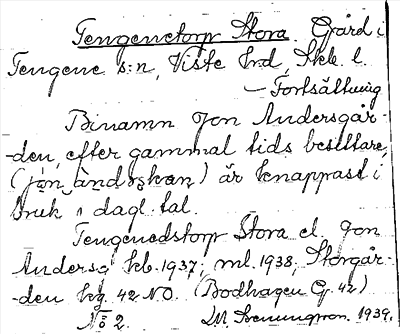 Tengenetorp Stora. Gård i
Tengene s:n, Viste hd, Skb. l.
— Fortsättning
Binamn Jon Andersgår-
-den, efter gammal tids besittare,
(jón ànდərskan) är knappast i
bruk i dagl. tal.
Tengenedstorp Stora el. Jon
Anders kb. 1937; ml. 1938; Storgår-
-den kg. 42 NO. (Bodhagen G. 42)
No 2. M. 1939.